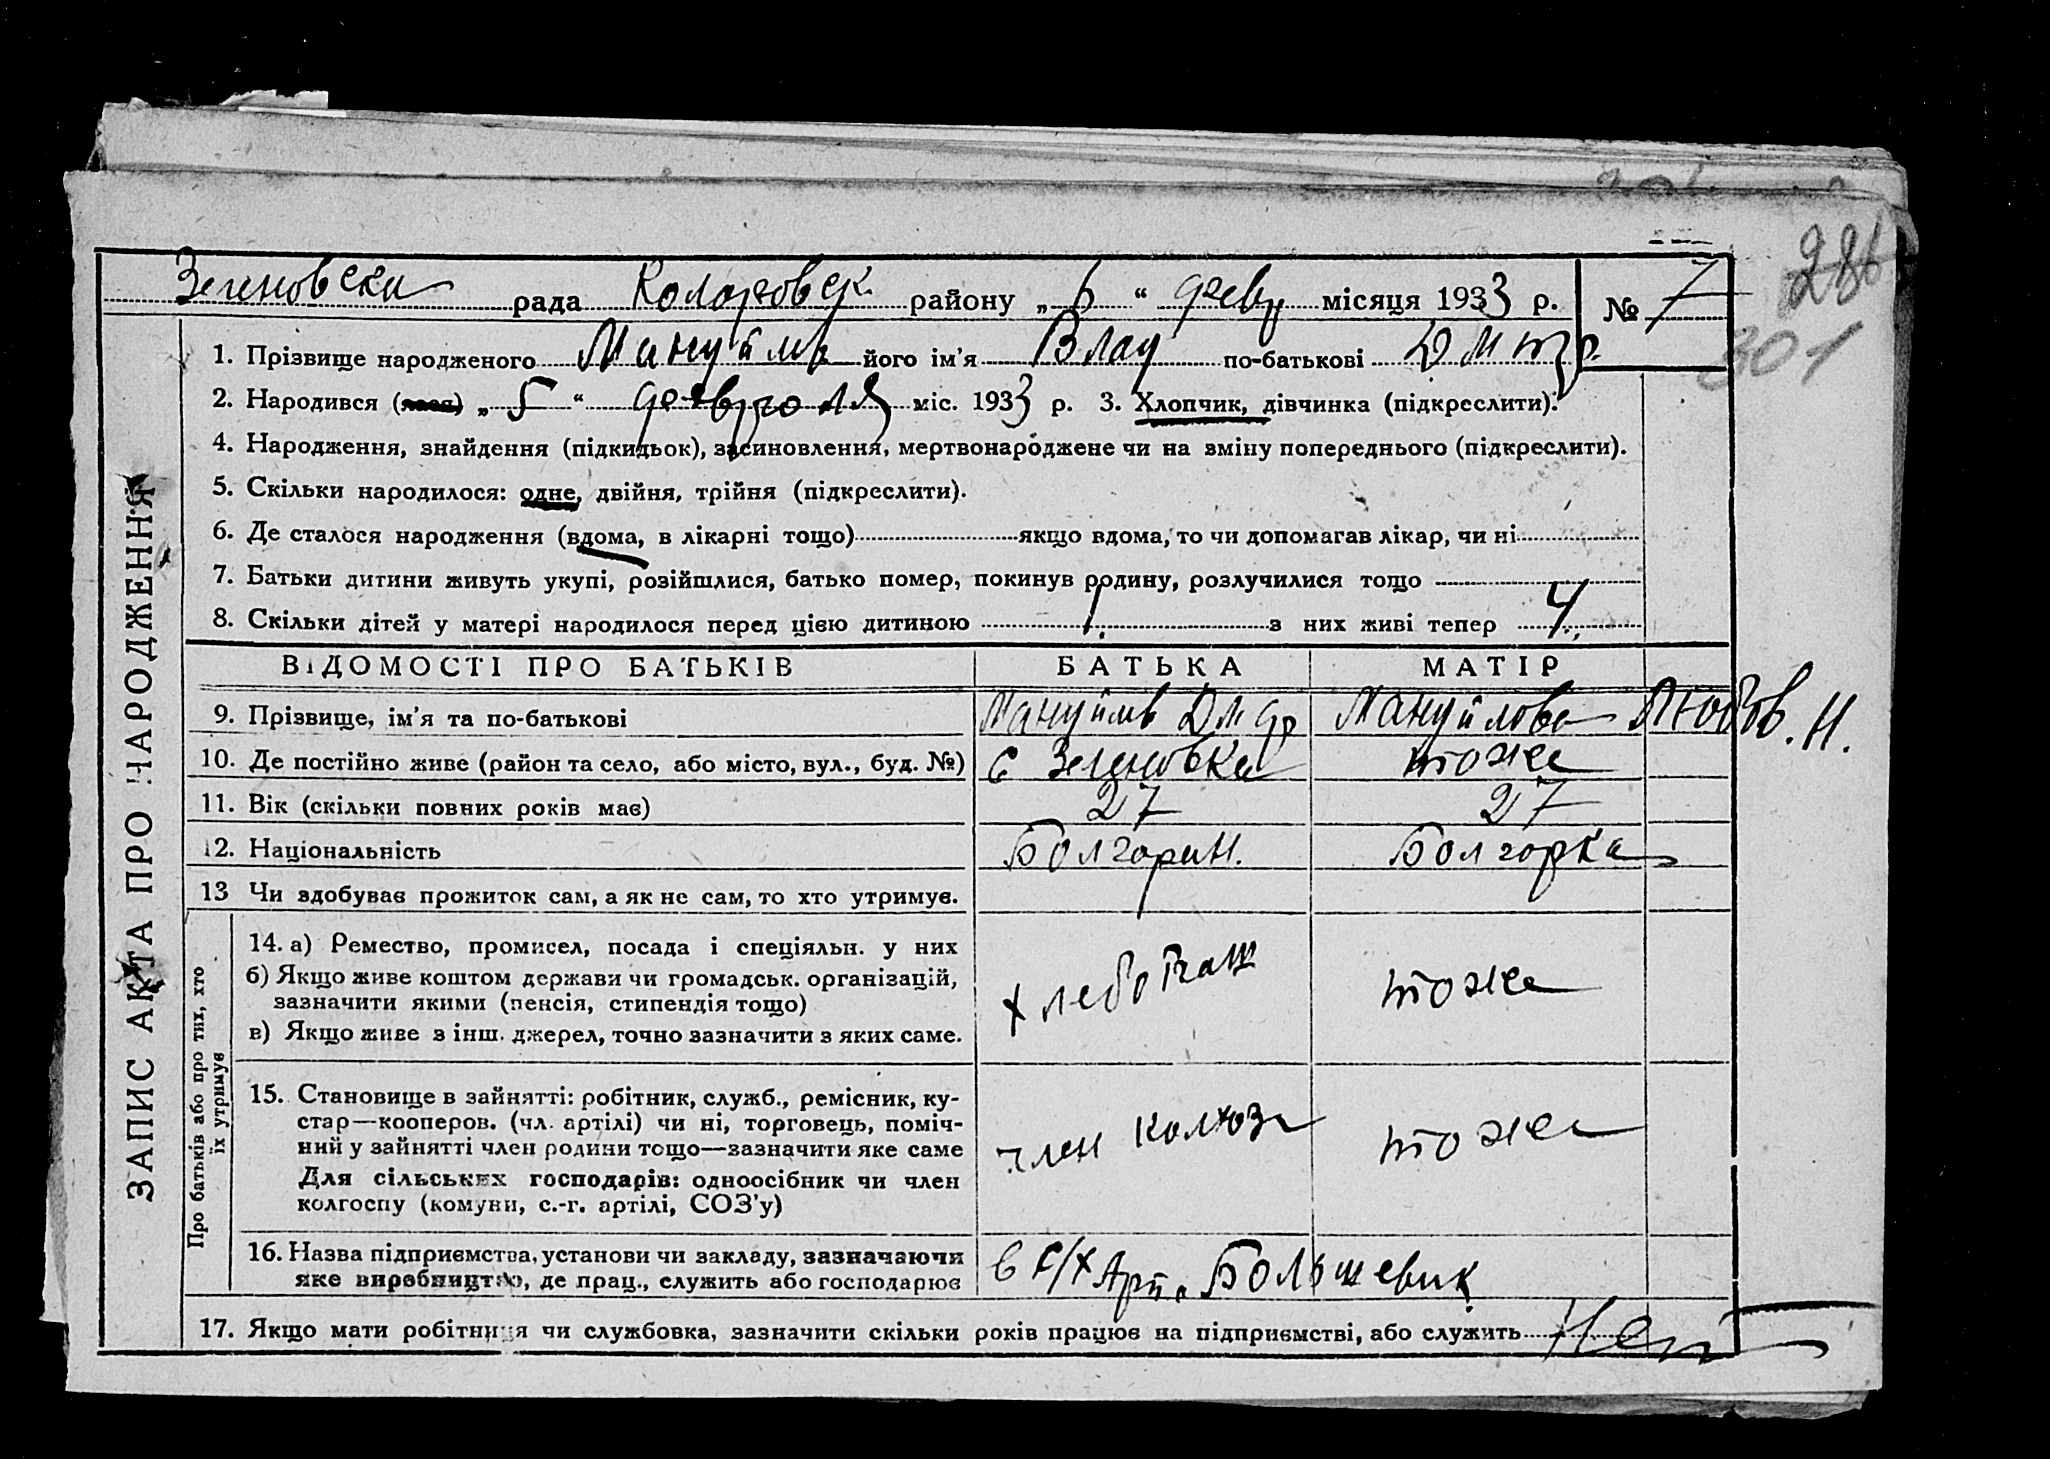 Зеленовска рада Коларовск. району „ 6 “ февр місяця 1933 р. № 7
286
301
1. Прізвище народженого Мануйлов його ім’я Влад по-батькові Дмитр.
2. Народився (лася) „ 5 “ февраля міс. 1933 р. 3. Хлопчик, дівчинка (підкреслити).
4. Народження, знайдення (підкидьок), засиновлення, мертвонароджене чи на зміну попереднього (підкреслити).
5. Скільки народилося: одне, двійня, трійня (підкреслити).
6. Де сталося народження (вдома, в лікарні тощо) якщо вдома, то чи допомагав лікар, чи ні
7. Батьки дитини живуть укупі, розійшлися, батько помер, покинув родину, розлучилися тощо
8. Скільки дітей у матері народилося перед цією дитиною 1. з них живі тепер 4
ВІДОМОСТІ ПРО БАТЬКІВ БАТЬКА МАТІР
9. Прізвище, ім’я та по-батькові Мануйлов Мануйлова Любов. Н.
10. Де постійно живе (район та село, або місто, вул., буд. №) с Зеленовка тоже
11. Вік (скільки повних років має) 27 27
12. Національність Болгарин. Болгарка
13 Чи здобуває прожиток сам, а як не сам, то хто утримує.
14. а) Ремество, промисел, посада і спеціяльн. у них
б) Якщо живе коштом держави чи громадськ. організацій,
зазначити якими (пенсія, стипендія тощо)
в) Якщо живе з інш. джерел, точно зазначити з яких саме.
хлебопаш тоже
15. Становище в зайнятті: робітник, служб., ремісник, ку-
стар—кооперов. (чл. артілі) чи ні, торговець, поміч-
ний у зайнятті член родини тощо—зазначити яке саме
Для сільських господарів: одноосібник чи член
колгоспу (комуни, с.-г. артілі, СОЗ’у)
член колхоза тоже
16. Назва підприємства, установи чи закладу, зазначаючи
яке виробництво, де прац., служить або господарює
в с/х Арт. Большевик
17. Якщо мати робітниця чи службовка, зазначити скільки років працює на підприємстві, або служить Нет
ЗАПИС АКТА ПРО НАРОДЖЕННЯ
Про батьків або про тих, хто
їх утримує